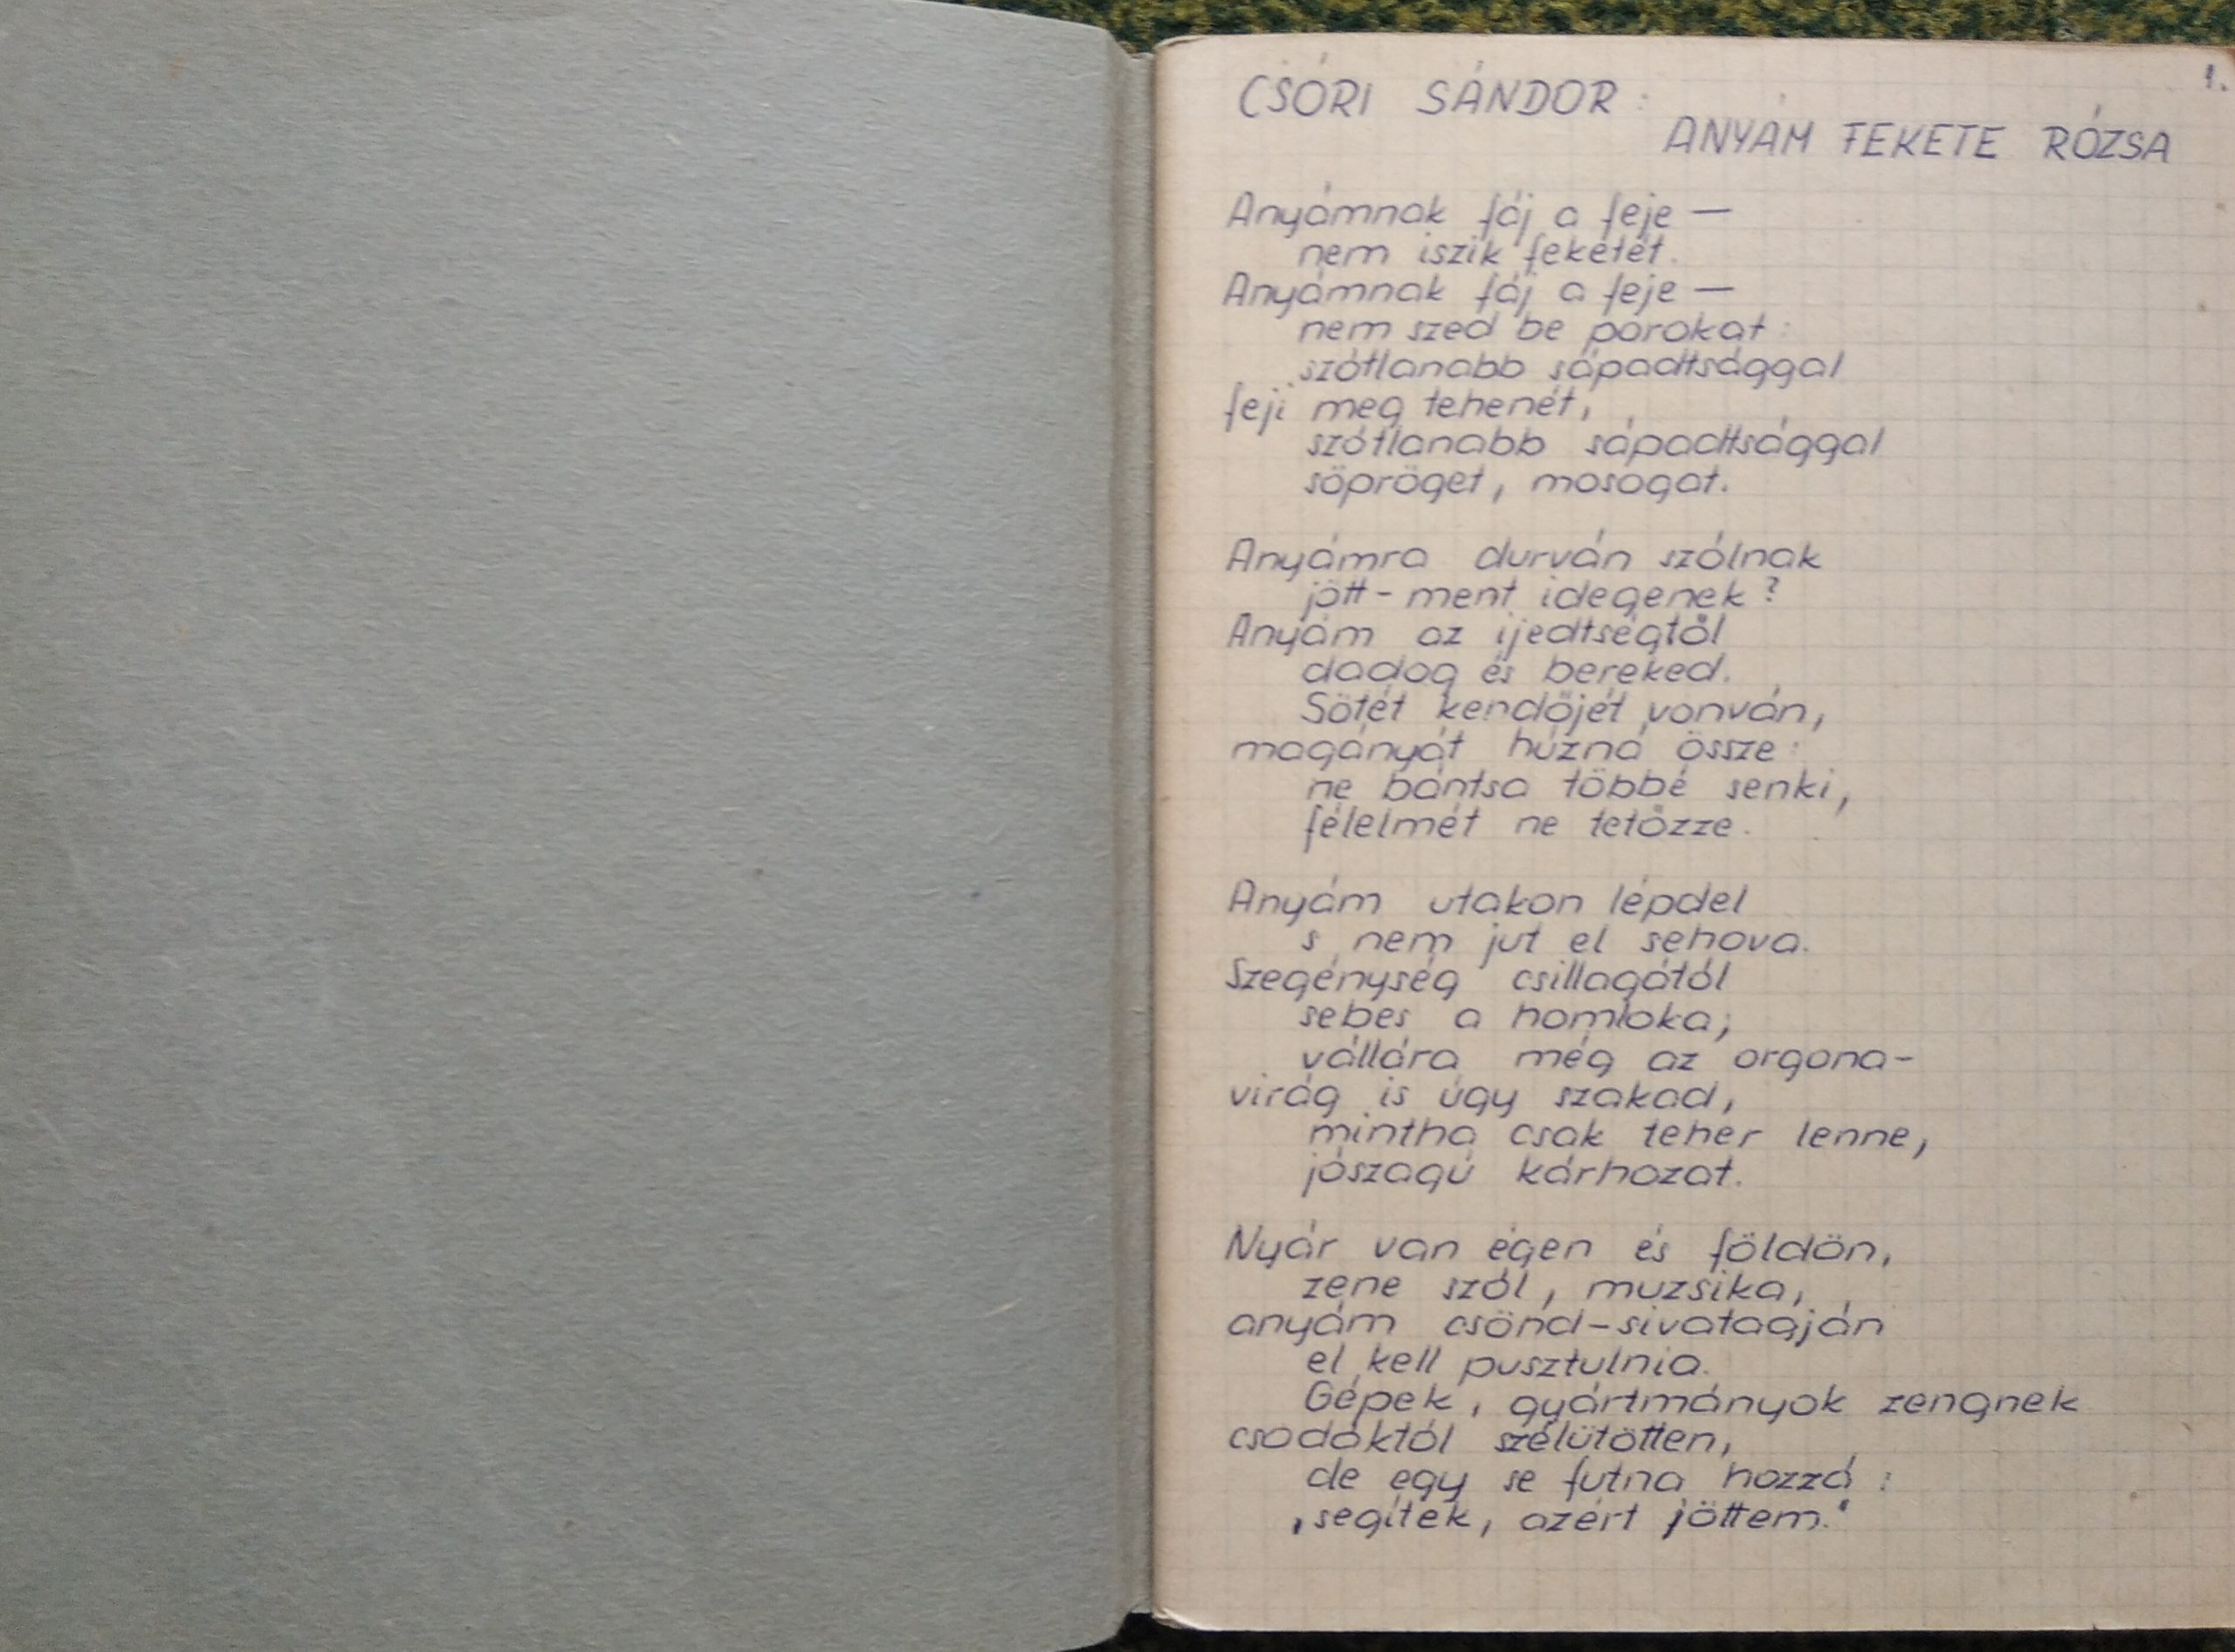 1.
CSÓRI SÁNDOR:
ANYÁM FEKETE RÓZSA
Anyámnak fáj a feje —
nem iszik feketét.
Anyámnak fáj a feje —
nem szed be porokat:
szótlanabb sápadtsággal
feji meg tehenét,
szótlanabb sápadtsággal
söpröget, mosogat.
Anyámra durván szólnak
jött-ment idegenek?
Anyám az ijedtségtől
dadog és bereked.
Sötét kendőjét vonván,
magányát húzná össze:
ne bántsa többé senki,
félelmét ne tetőzze.
Anyám utakon lépdel
s nem jut el sehova.
Szegénység csillagától
sebes a homloka;
vállára még az orgona-
virág is úgy szakad,
mintha csak teher lenne,
jószagú kárhozat.
Nyár van égen és földön,
zene szól, muzsika,
anyám csönd-sivatagján
el kell pusztulnia.
Gépek, gyártmányok zengnek
csodáktól szélütötten,
de egy se futna hozzá:
„segítek, azért jöttem."